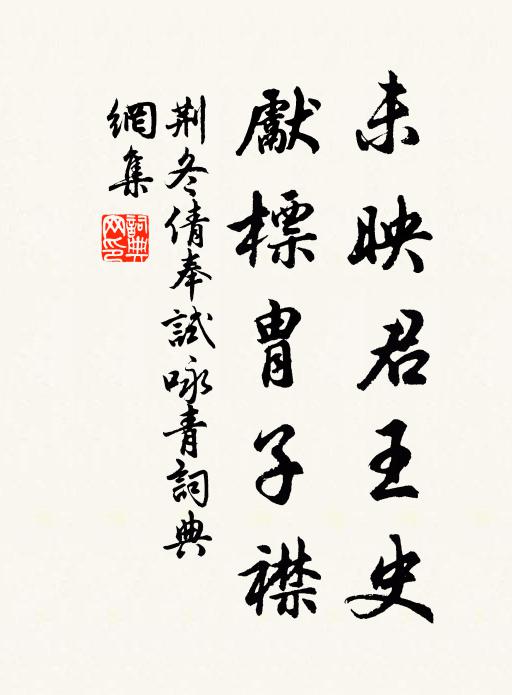 未映君王史
獻標胄子襟
荆冬倩奉試咏青詞典
網集
詞典網印